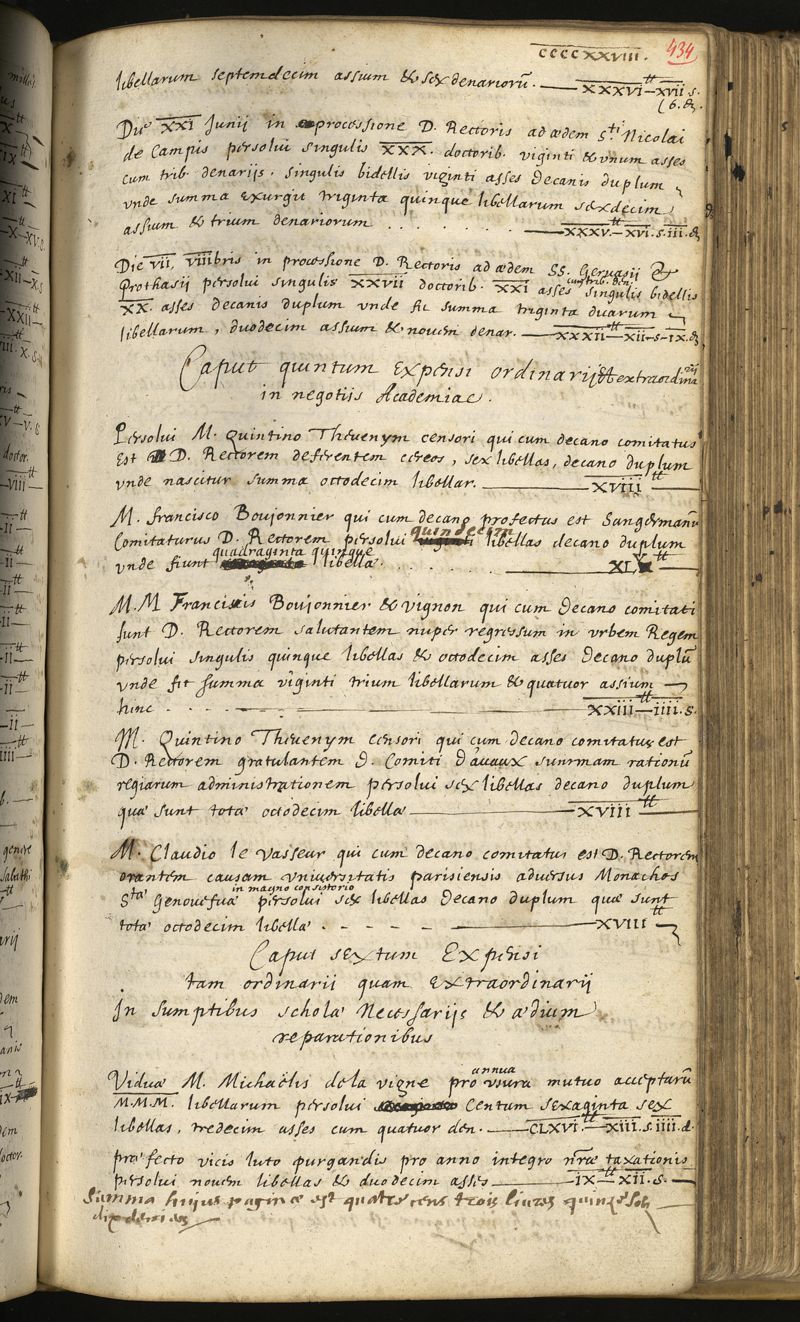 ccccxxviii. 434
libellarum septemdecim assium & sex denariorū. — xxxvi tt xvii s.
(6. d.
Die xxi Junii in processione D. Rectoris ad aedem Sti Nicolai
de Campis persolui singulis xxx. doctorib. viginti & vnum asses
cum trib. denarijs. singulis bidellis viginti asses Decanis duplum
vnde summa exurgit triginta quinque libellarum sexdecim
assium & trium denariorum . . . . . . . — xxxv. tt xvi. s. iii. d
Die vii, viiibris in processione D. Rectoris ad aedem SS. Geruasij &
Prothasij persolui singulis xxvii doctorib. xxi asses cum trib. den. singulis bidellis
xx. asses decanis duplum vnde fit summa triginta duarum
libellarum, duodecim assium & nouem denar. — xxxii tt xii s ix. d
Caput quintum Expensi ordinarij & extraordinarij
in negotiis Academiae.
Persolui M. Quintino Theuenym censori qui cum decano comitatus
est D. Rectorem deferentem cereos, sex libellas, decano duplum
vnde nascitur summa octodecim libellar. — xviii tt —
M. Francisco Boujonnier qui cum decano profectus est Sangermanū
Comitaturus D. Rectorem persolui quindecim libellas decano duplum
vnde fiunt quadraginta quinque libellae . . . . . . — xlv tt —
M.M Franciscis Boujonnier & vignon qui cum Decano comitati
sunt D. Rectorem salutantem nuper regressum in vrbem Regem
persolui singulis quinque libellas & octodecim asses Decano duplū
vnde fit summa viginti trium libellarum & quatuor assium
hinc . . . . — xxiii tt iiii. s.
M. Quintino Theuenym censori qui cum decano comitatus est
D. Rectorem gratulantem D. Comiti Dauaux summam rationū
regiarum administrationem persolui sex libellas decano duplum
quae sunt totae octodecim libellae — xviii tt —
M. Claudio le vasseur qui cum decano comitatus est D. Rectorem
orantem causam vniuersitatis parisiensis aduersus Monachos
Stae Genouefuae in magno consistorio persolui sex libellas Decano duplum quae sunt
totae octodecim libellae . - - - - — xviii tt
Caput sextum Expensi
tam ordinarii quam Extraordinarij
In sumptibus scholae Necessarijs & aedium
reparationibus
Viduae M. Michaëlis dela vigne pro annua vsura mutuo acceptarū
M.M.M. libellarum persolui Centum sexaginta sex
libellas, tredecim asses cum quatuor den. — CLXVI. tt XIII. s. iiii. d.
praefecto vicis luto purgandis pro anno integro nrae taxationis
persolui nouem libellas & duodecim asses — ix tt xii. s. —
Summa huius paginae est quatre cens trois liures quinze solz
dix deniers